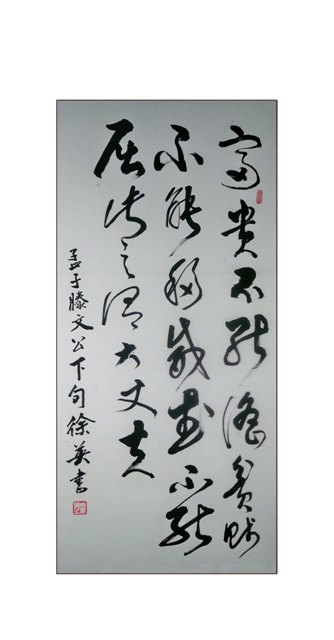 富贵不能淫贫贱
不能移威武不能
屈此之谓大丈夫
孟子滕文公下句徐英书